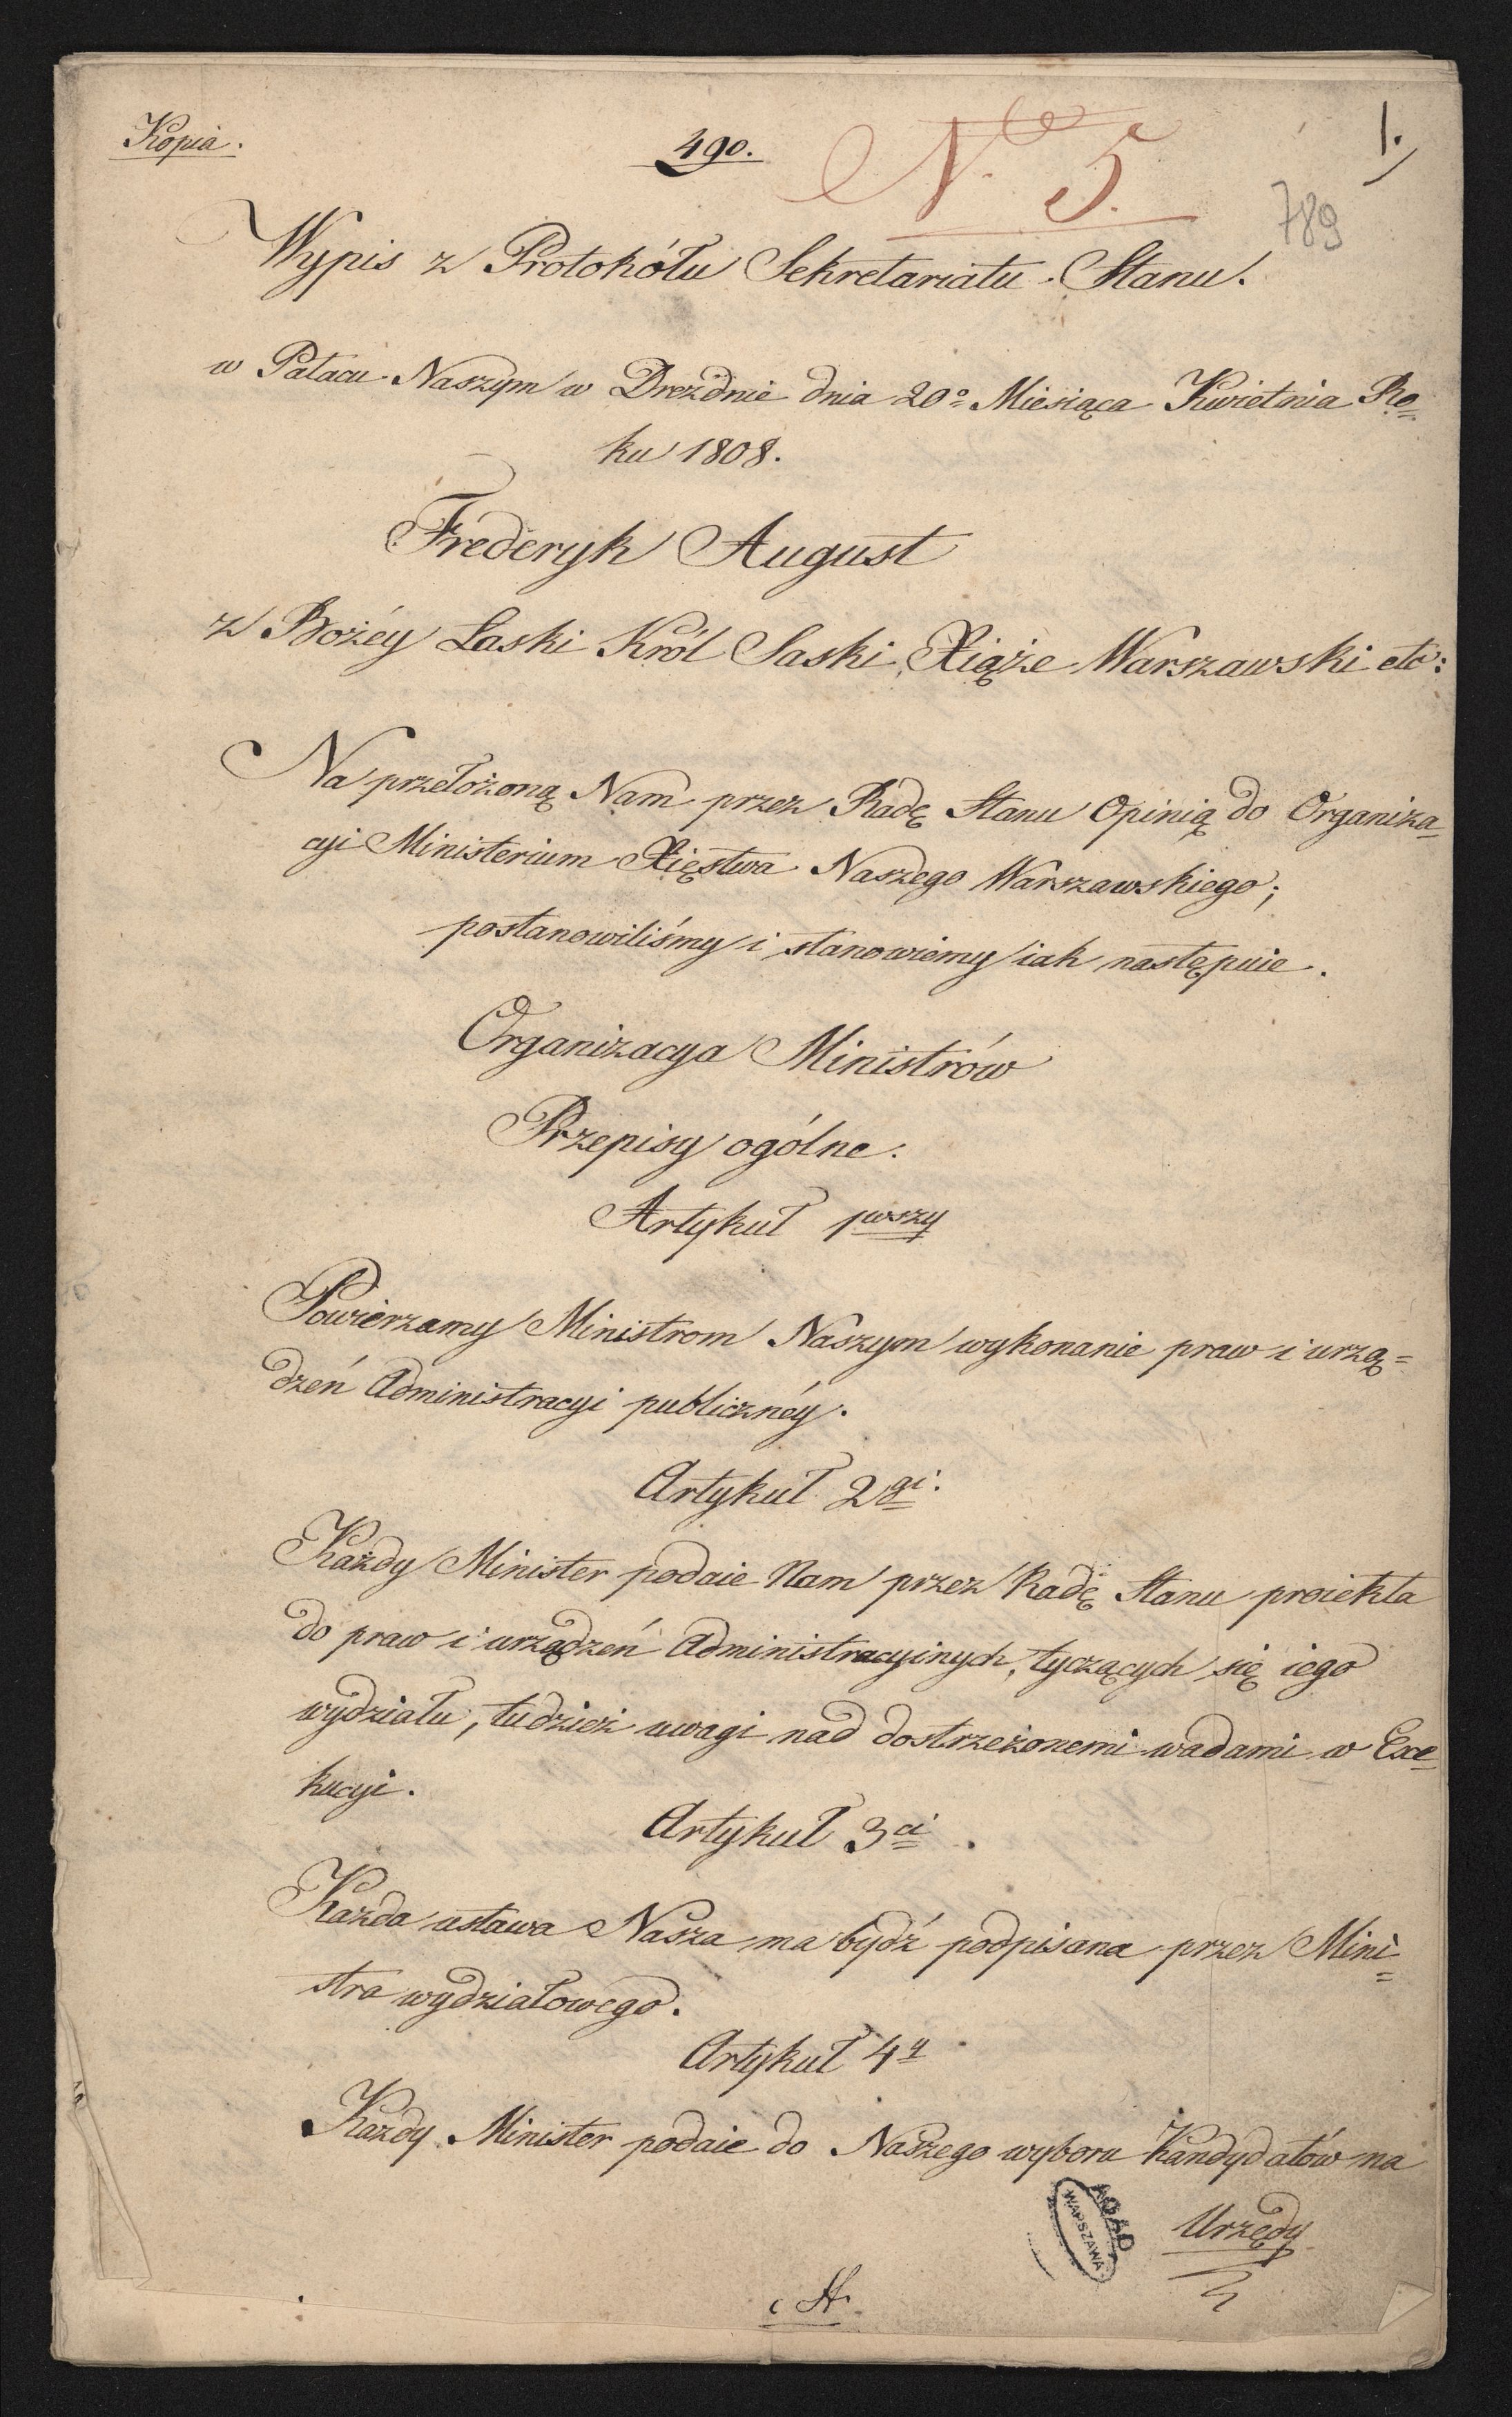 Kopia.
490.
No. 5.
1.
789
Wypis z Protokółu Sekretariatu Stanu.
w Pałacu Naszym w Dreźdnie dnia 20o Miesiąca Kwietnia Ro=
ku 1808.
Frederyk August
z Bożéy Łaski Król Saski, Xiąże Warszawski etc:
Na przełożoną Nam przez Radę Stanu Opinią do Organiza=
cyi Ministerium Xięstwa Naszego Warszawskiego;
postanowiliśmy i stanowiemy iak następuie.
Organizacya Ministrów
Przepisy ogólne.
Artykuł 1wszy
Powierzamy Ministrom Naszym wykonanie praw i urzą=
dzeń Administracyi publicznéy.
Artykuł 2gi.
Każdy Minister podaie Nam przez Radę Stanu proiekta
do praw i urządzeń Administracyinych, tyczących się iego
wydziału, tudzież uwagi nad dostrzeżonemi wadami w Exe=
kucyi.
Artykuł 3ci.
Każda ustawa Nasza ma bydź podpisana przez Mini=
stra wydziałowego.
Artykuł 4y
Każdy Minister podaie do Naszego wyboru Kandydatów na
Urzędy
AGAD
WARSZAWA